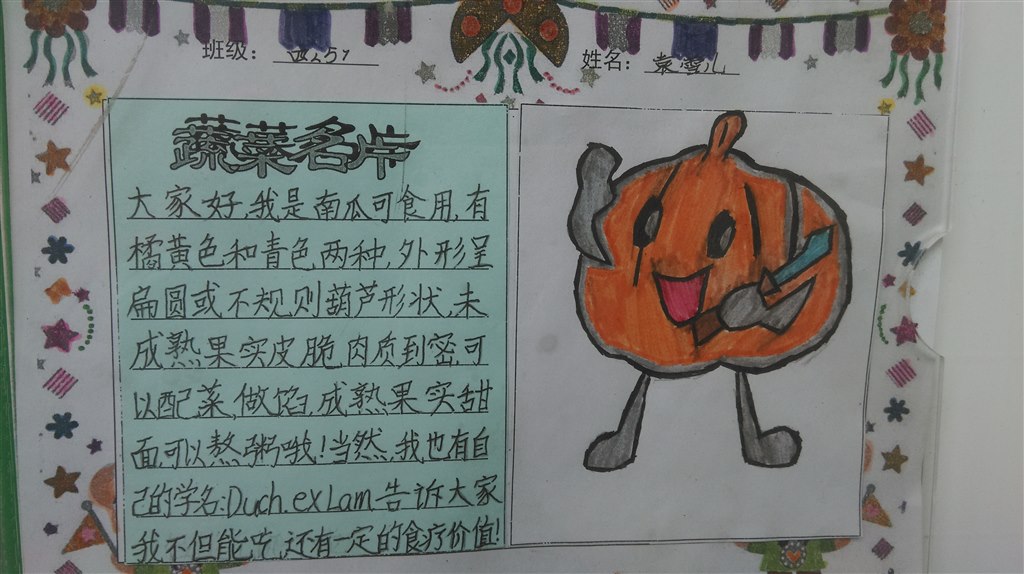 班级：四(5)
姓名：袁雪儿
蔬菜名片
大家好,我是南瓜可食用,有
橘黄色和青色两种,外形呈
扁圆或不规则葫芦形状,未
成熟果实皮脆肉质到密,可
以配菜,做馅,成熟果实甜
面,可以熬粥哦!当然,我也有自
己的学名:Duch.exLam.告诉大家
我不但能吃,还有一定的食疗价值!